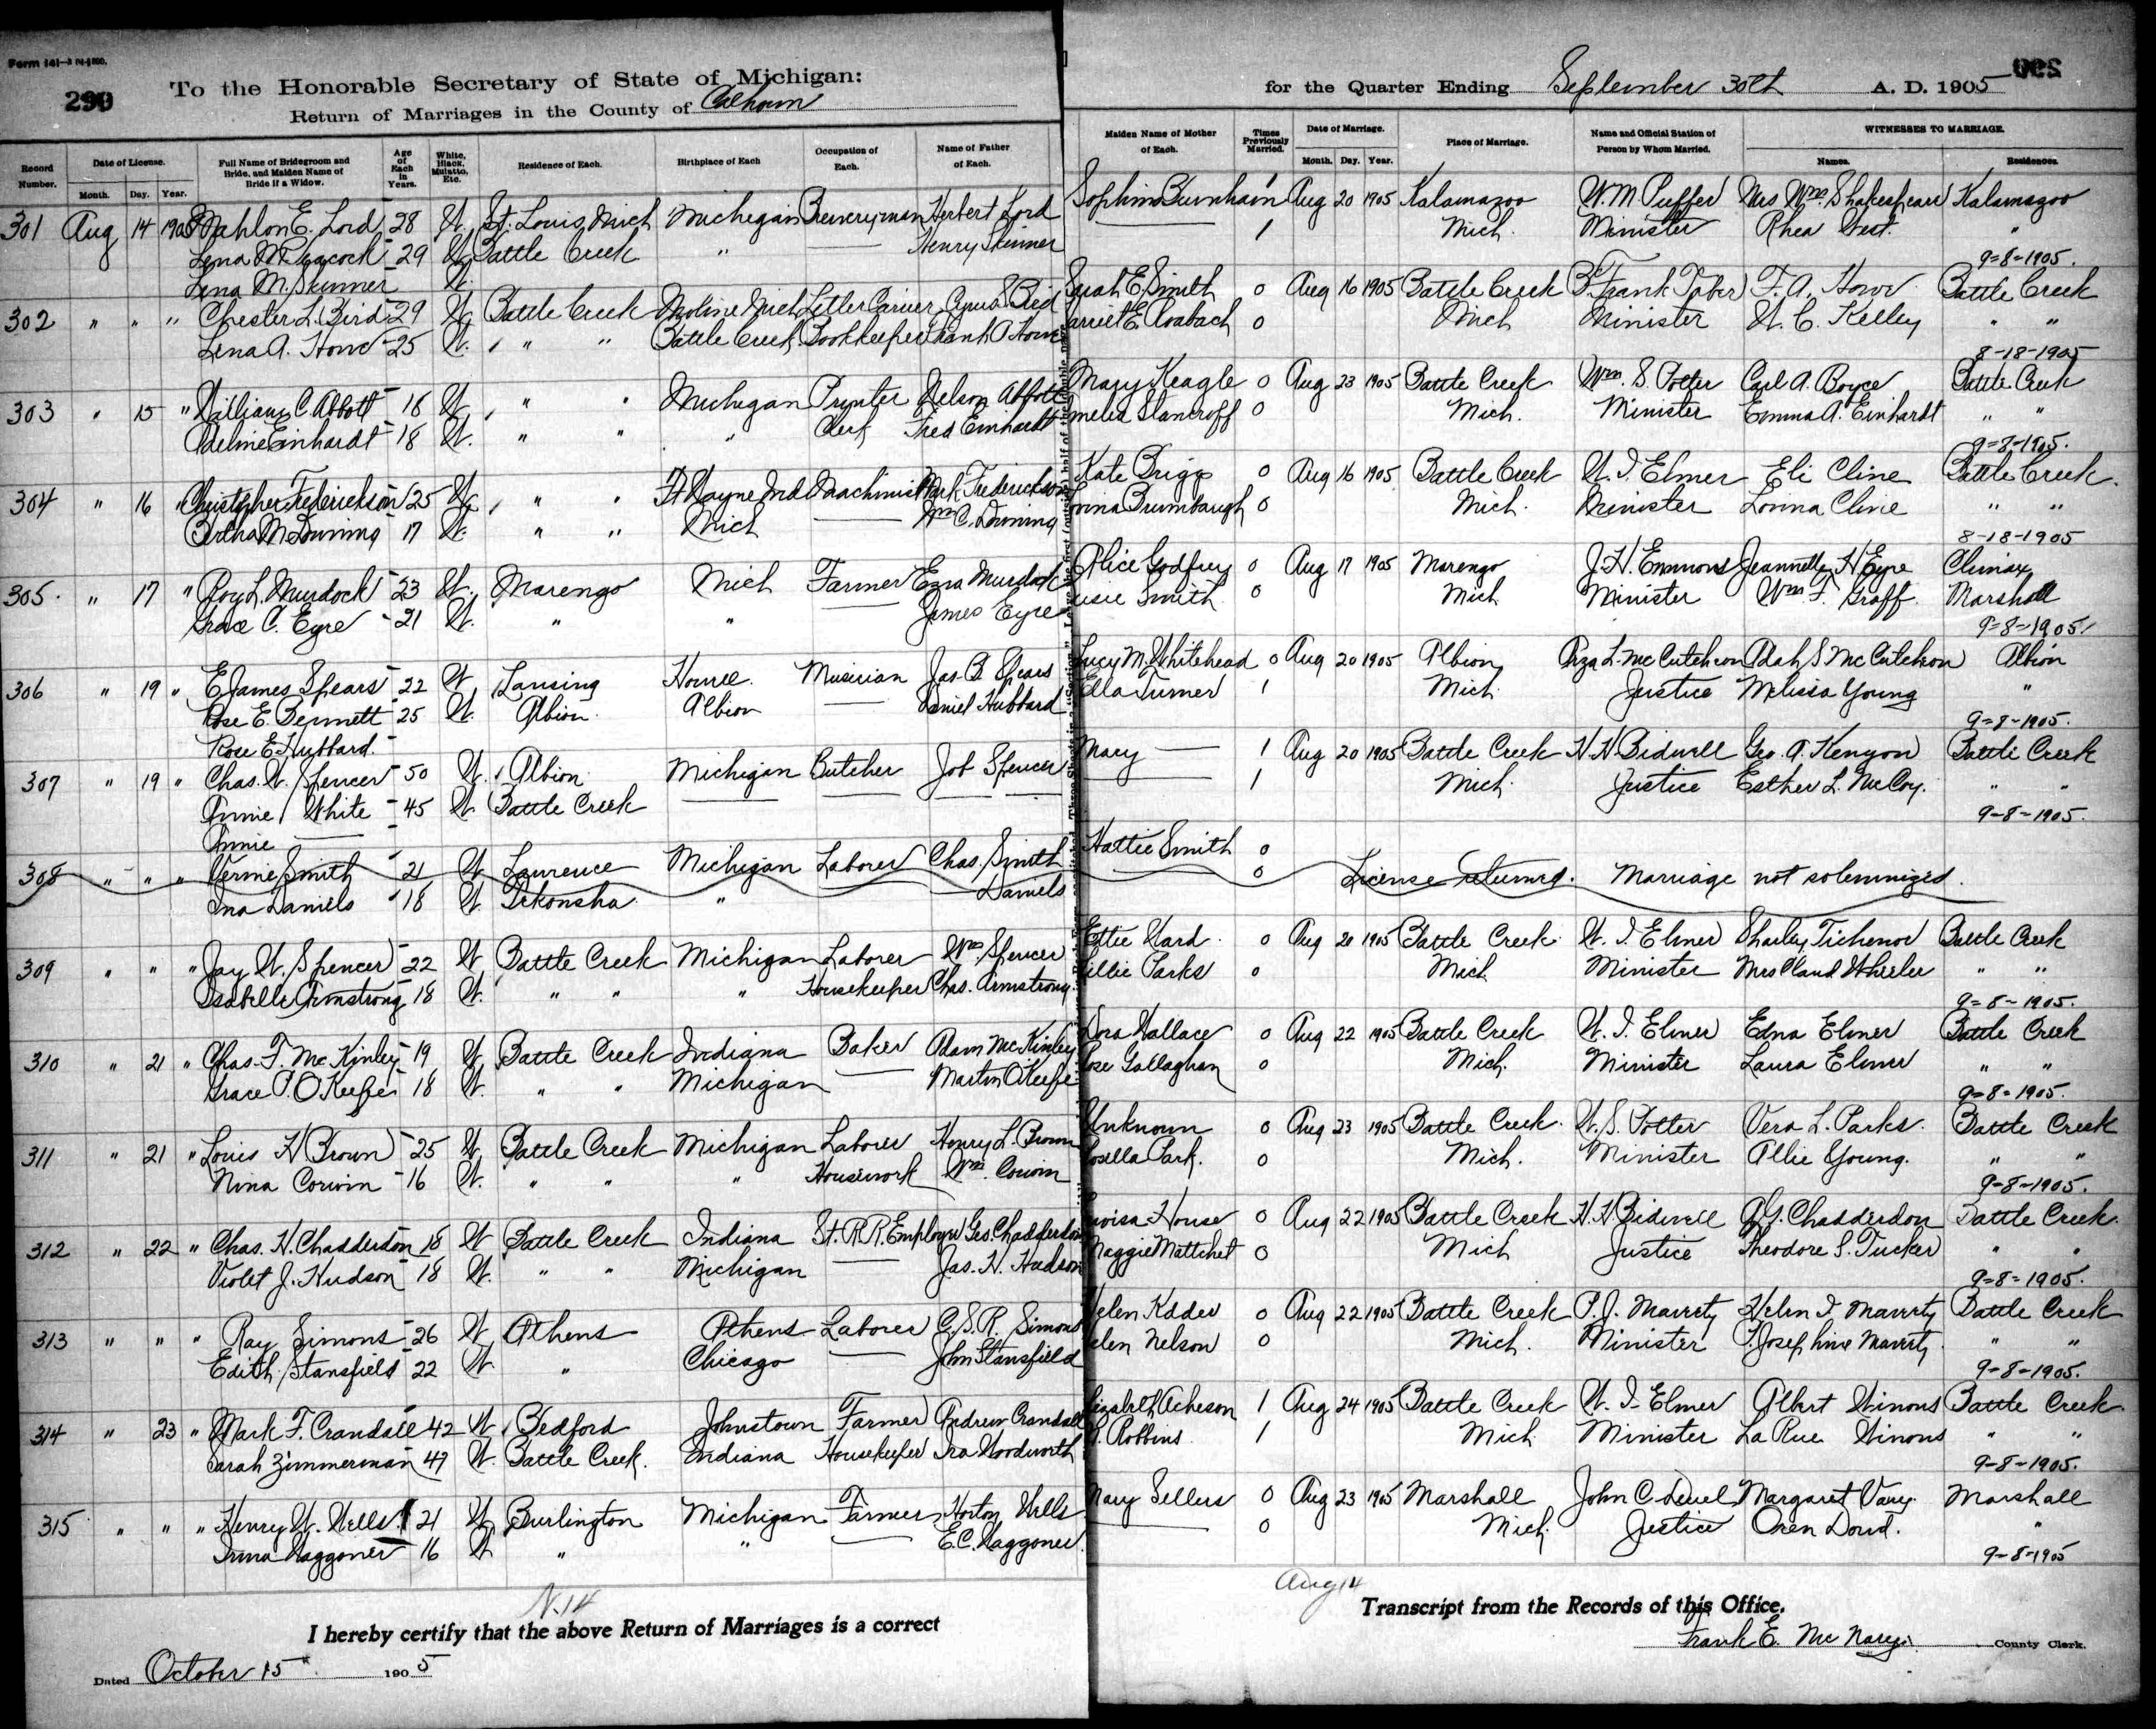 Form 141
290
To the Honorable Secretary of State of Michigan:
Return of Marriages in the County of Calhoun
Record Number.
Date of License.
Month. Day. Year.
Full Name of Bridegroom and Bride, and Maiden Name of Bride if a Widow.
Age of Each in Years.
White, Black, Mulatto, Etc.
Residence of Each.
Birthplace of Each
Occupation of Each.
Name of Father of Each.
301 Aug 14 1905 Mahlon E. Lord 28 W. St. Louis, Mich Michigan Herbert Lord
Lena M. Peacock 29 W. Battle Creek " — Henry Skinner
Lena M. Skinner W.
302 " " " Chester L. Bird 29 W. Battle Creek Moline Mich Letter Carrier Cyrus S Bird
Lena A. Howe 25 W. " " Battle Creek Bookkeeper Frank A Howe
303 " 15 " William C. Abbott 18 W. " " Michigan Prynter Nelson Abbott
Adeline Einhardt 18 W. " " " Clerk Fred Einhardt
304 " 16 " Christopher Frederickson 25 W. " " Ft Wayne Ind Machinist Mark Frederickson
Bertha M. Dunning 17 W. " " Mich — Wm C. Dunning
305. " 17 " Roy L. Murdock 23 W. Marengo Mich Farmer Ezra Murdock
Grace C. Eyre 21 W. " " — James Eyre
306 " 19 " E James Spears 22 W. Lansing Howell. Musician Jas. B Spears
Rose E. Bennett 25 W. Albion. Albion — Daniel Hubbard
Rose E. Hubbard.
307 " 19 " Chas. W. Spencer 50 W. Albion Michigan Butcher Job Spencer
Annie White 45 W. Battle Creek — — —
Annie —
308 " " " Vernie Smith 21 W. Lawrence Michigan Laborer Chas. Smith
Ina Daniels 18 W. Tekonsha " — Daniels
309 " " " Jay W. Spencer 22 W. Battle Creek Michigan Laborer Wm. Spencer
Isabelle Armstrong 18 W. " " " Housekeeper Chas. Armstrong
310 " 21 " Chas. F. McKinley 19 W. Battle Creek Indiana Baker Adam McKinley
Grace P. O'Keefe 18 W. " " Michigan — Martin O'Keefe
311 " 21 " Louis H Brown 25 W. Battle Creek Michigan Laborer Henry L. Brown
Nina Corwin 16 W. " " " Housework Wm. Corwin
312 " 22 " Chas. H. Chadderdon 18 W. Battle Creek Indiana St. R.R. Employe Geo. Chadderdon
Violet J. Hudson 18 W. " " Michigan — Jas. H. Hudson
313 " " " Ray Simons 26 W. Athens Athens Laborer C. S. R. Simons
Edith Stansfield 22 W. " Chicago — John Stansfield
314 " 23 " Mark F. Crandall 42 W. Bedford Johnstown Farmer Andrew Crandall
Sarah Zimmerman 47 W. Battle Creek. Indiana Housekeeper Ira Woodworth
315 " " " Henry W. Wells 21 W. Burlington Michigan Farmer Horton Wells
Irma Waggoner 16 W. " " — E.C. Waggoner
N.14
I hereby certify that the above Return of Marriages is a correct
Dated October 15" 1905
for the Quarter Ending September 30th A. D. 1905
290
Maiden Name of Mother of Each.
Times Previously Married.
Date of Marriage.
Month. Day. Year.
Place of Marriage.
Name and Official Station of Person by Whom Married.
WITNESSES TO MARRIAGE.
Names. Residences.
Burnham 1 Aug 20 1905 Kalamazoo W. M Puffer Mrs Wm. Shakespeare Kalamazoo
— 1 Mich. Minister Rhea West. "
9-8-1905.
Sarah E. Smith 0 Aug 16 1905 Battle Creek B. Frank Taber F. A. Howe Battle Creek
Harriet E 0 Mich Minister W. C. Kelley " "
8-18-1905
Mary Keagle 0 Aug 23 1905 Battle Creek Wm. S. Potter Carl A. Boyce Battle Creek
0 Mich. Minister Emma A. Einhardt " "
9-8-1905.
Kate Briggs 0 Aug 16 1905 Battle Creek W. I. Elmer Eli Cline Battle Creek.
Brumbaugh 0 Mich. Minister Lovina Cline " "
8-18-1905
Alice Godfrey 0 Aug 17 1905 Marengo J. H. Emmons Jeannette H Eyre Climax
Smith 0 Mich Minister Wm. F. Graff. Marshall
9-8-1905
Lucy M. Whitehead 0 Aug 20 1905 Albion L. McCutcheon Adah S McCutcheon Albion
Ella Turner 1 Mich. Justice Melissa Young "
9-8-1905.
Mary — 1 Aug 20 1905 Battle Creek H. H. Bidwell Geo. A. Kenyon Battle Creek
— 1 Mich. Justice Esther L. McCoy. " "
9-8-1905.
Hattie Smith 0
— 0 License returned. Marriage not solemnized.
Ettie Ward. 0 Aug 20 1905 Battle Creek W. I. Elmer Sharley Tichenor Battle Creek
Lillie Parks 0 Mich Minister Mrs Claud Wheeler " "
9-8-1905.
Dora Wallace 0 Aug 22 1905 Battle Creek W. I. Elmer Edna Elmer Battle Creek
Rose Gallaghan 0 Mich. Minister Laura Elmer " "
9-8-1905.
Unknown 0 Aug 23 1905 Battle Creek. W. S. Potter Vera L. Parks. Battle Creek
Rosella Park. 0 Mich. Minister Allie Young. " "
9-8-1905.
Lovisa House 0 Aug 22 1905 Battle Creek H. H Bidwell A. G. Chadderdon Battle Creek.
Maggie Mattchet 0 Mich Justice Theodore S. Tucker " "
9-8-1905.
Helen Kidder 0 Aug 22 1905 Battle Creek P. J. Maveety Helen I. Maveety Battle Creek
Helen Nelson 0 Mich. Minister Josephine Maveety " "
9-8-1905.
Elizabeth Acheson 1 Aug 24 1905 Battle Creek W. I. Elmer Albert Winons Battle Creek.
Robbins 1 Mich Minister La Rue Winons " "
9-8-1905.
Mary Sellers 0 Aug 23 1905 Marshall John C. Deuel Margaret Vary. Marshall
— 0 Mich. Justice Oren Dowd. "
9-8-1905
Aug 14
Transcript from the Records of this Office.
Frank E. McNary. County Clerk.